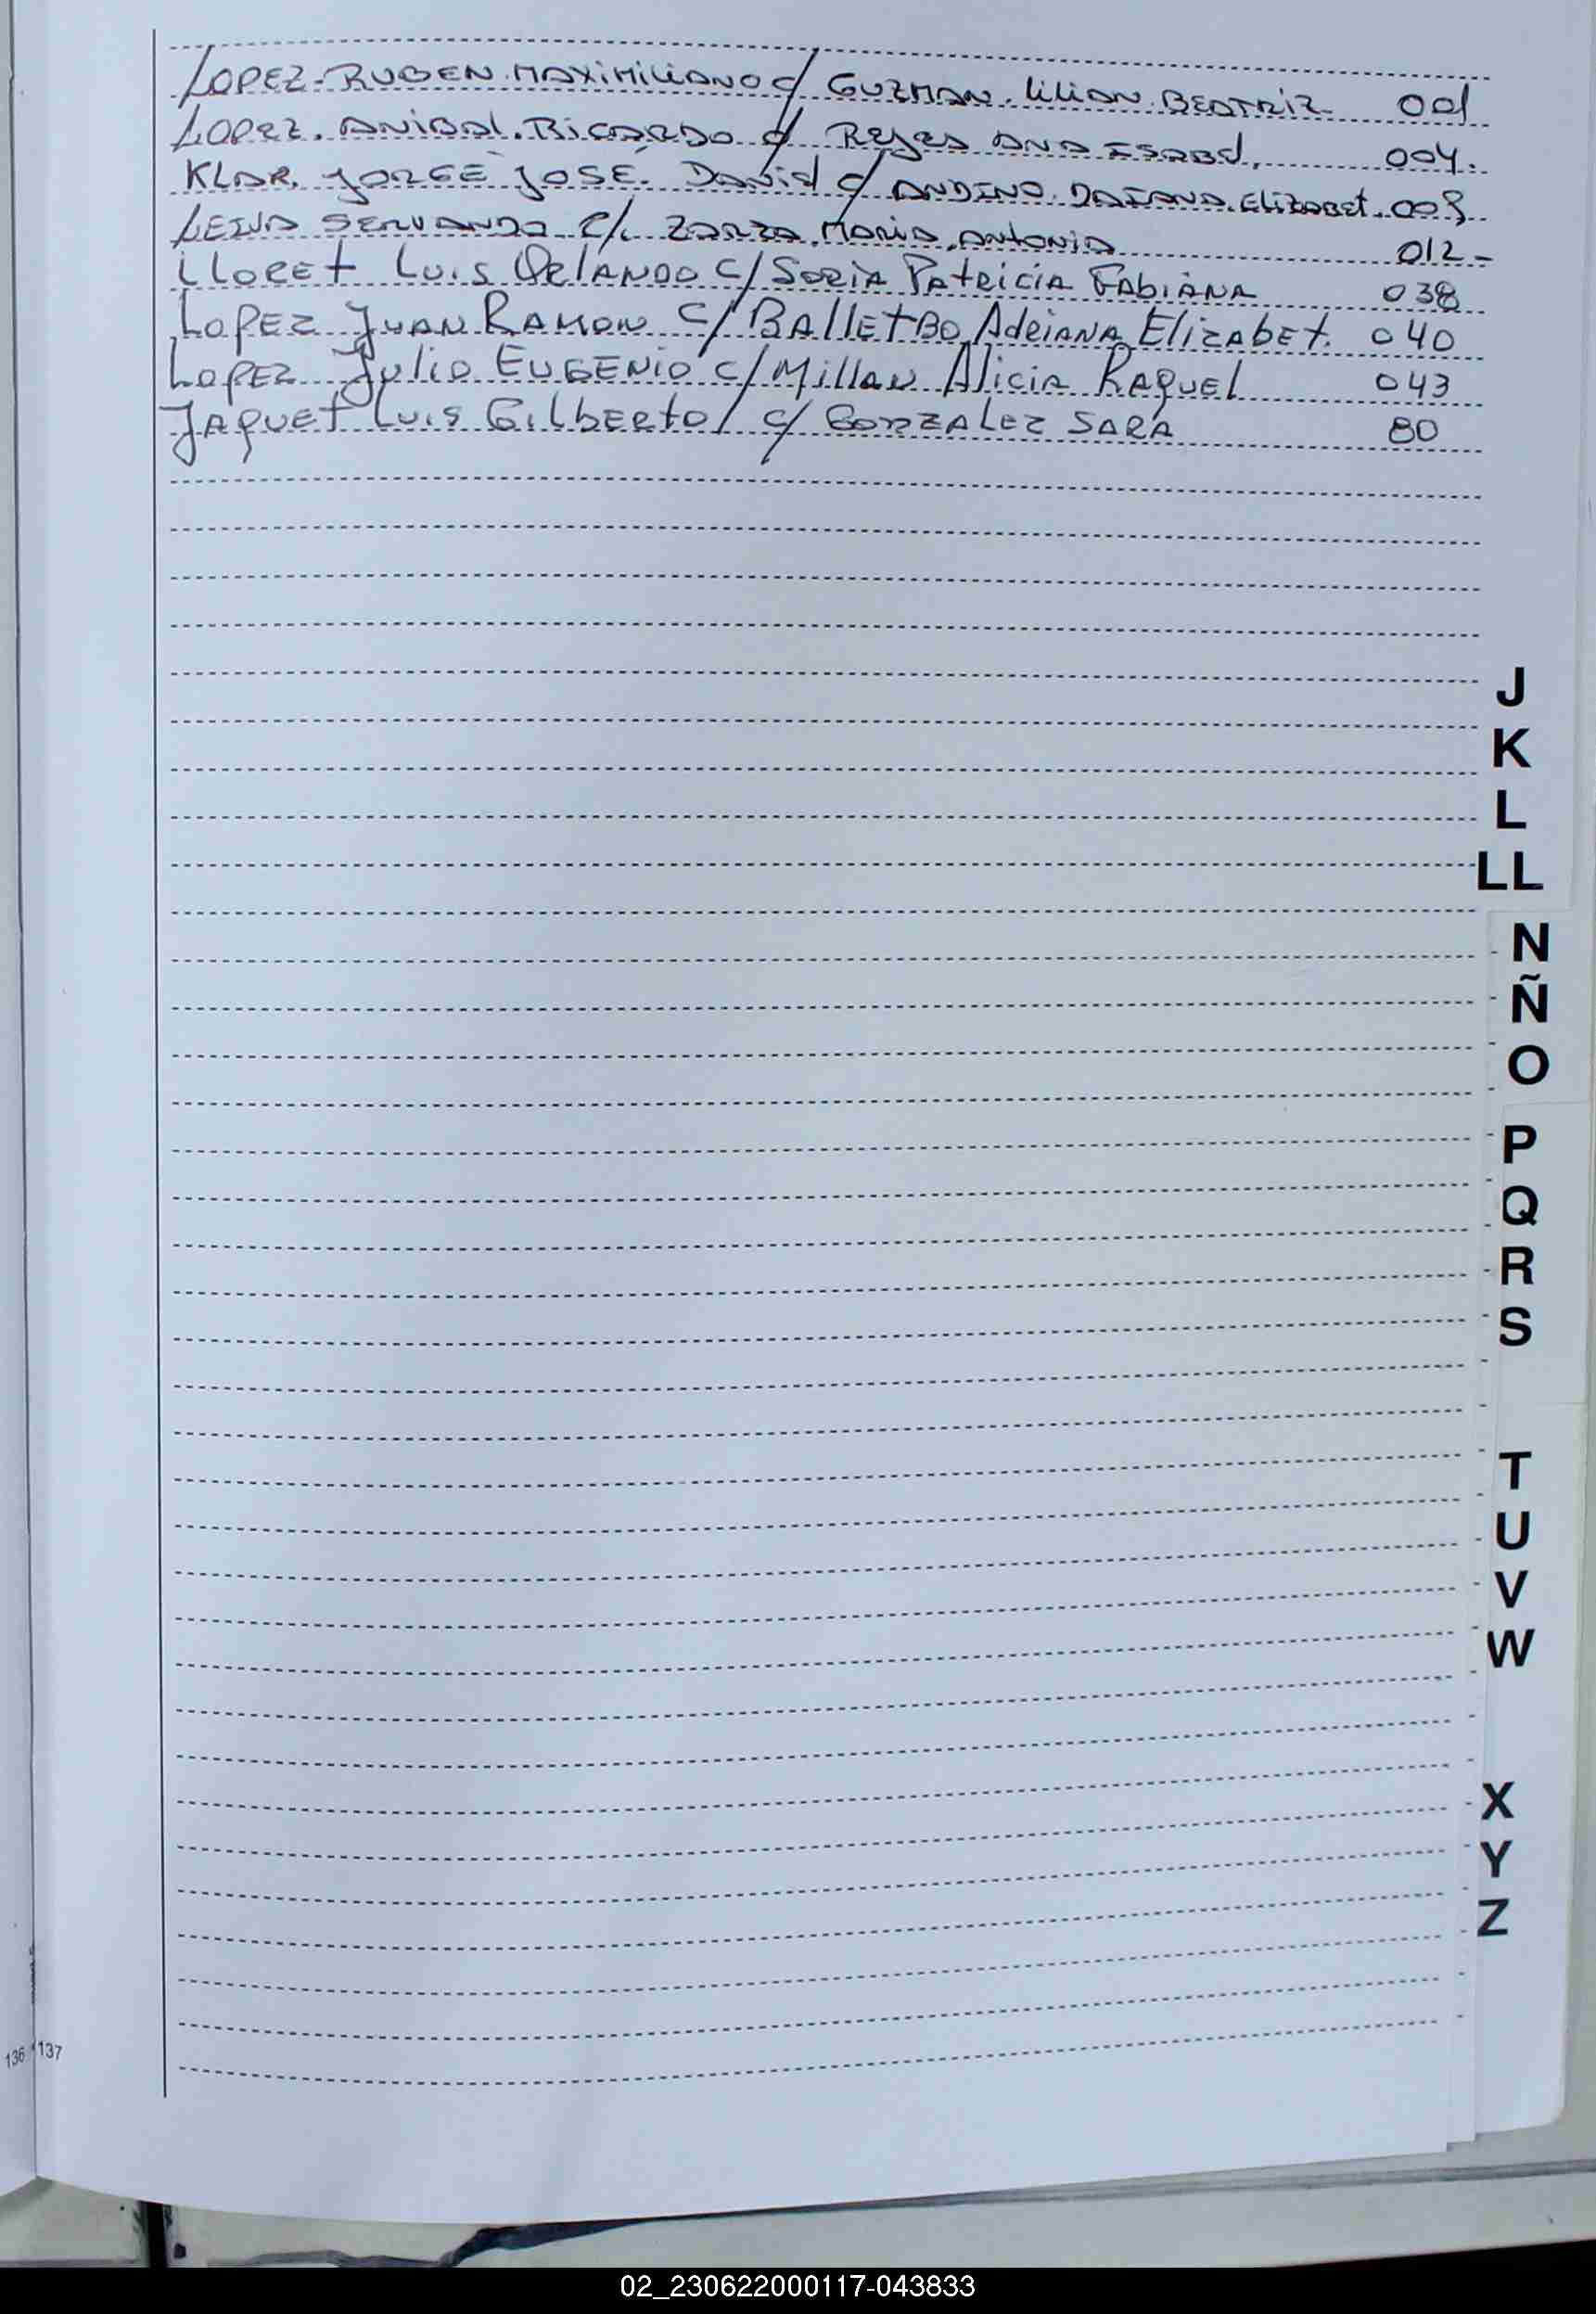 LOPEZ-RUBEN.MAXIMILIANO c/ GUZMAN.LILIAN.BEATRIZ 001
LOPEZ.ANIBAL.RICARDO c/ Reyes ANA ISABEL. 004.
KLAR. JORGE JOSÉ. David c/ ANDINO.DAIANA.Elizabet.
SERVANDO c/. ZARZA.MARIA.ANTONIA 012-
LLORET LUIS ORLANDO c/ SORIA PATRICIA FABIANA 038
LOPEZ JUAN RAMON c/ BALLETBO AdRIANA ElizabEt. 040
LOPEZ JULIO EUGENIO c/ Millan Alicia Raquel 043
JAQUET LUIS GILBERTO c/ GONZALEZ SARA 80
J
K
L
LL
N
Ñ
O
P
Q
R
S
T
U
V
W
X
Y
Z
136 137
02_230622000117-043833